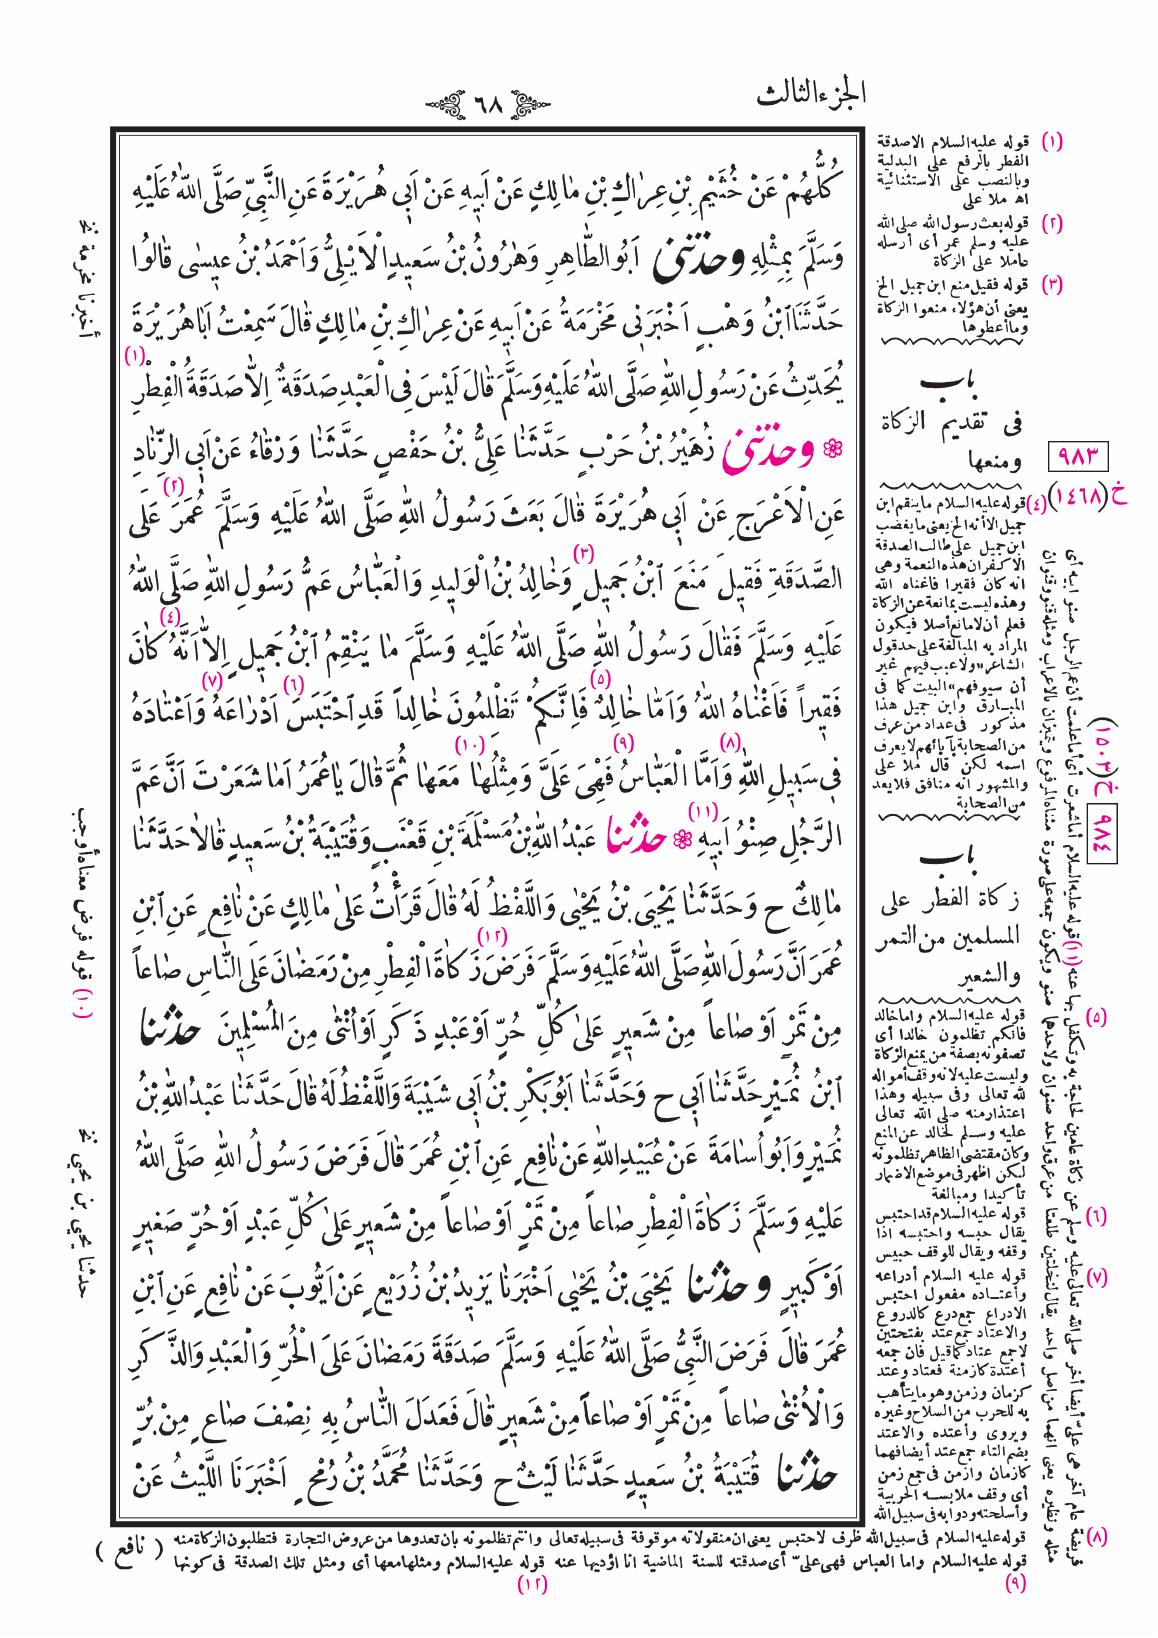 الجزء الثالث
٦٨
كُلُّهُمْ عَنْ خُثَيْمِ بْنِ عِرَاكِ بْنِ مَالِكٍ عَنْ اَبِيهِ عَنْ اَبِى هُرَيْرَةَ عَنِ النَّبِىِّ صَلَّى اللهُ عَلَيْهِ
وَسَلَّمَ بِمِثْلِهِ وحدّثنى اَبُو الطَّاهِرِ وَهٰرُونُ بْنُ سَعِيدٍ الْاَيْلِىُّ وَاَحْمَدُ بْنُ عِيسٰى قَالُوا
حَدَّثَنَا ابْنُ وَهْبٍ اَخْبَرَنِى مَخْرَمَةُ عَنْ اَبِيهِ عَنْ عِرَاكِ بْنِ مَالِكٍ قَالَ سَمِعْتُ اَبَا هُرَيْرَةَ
يُحَدِّثُ عَنْ رَسُولِ اللهِ صَلَّى اللهُ عَلَيْهِ وَسَلَّمَ قَالَ لَيْسَ فِى الْعَبْدِ صَدَقَةٌ اِلَّا صَدَقَةُ الْفِطْرِ (١)
وحدّثنى زُهَيْرُ بْنُ حَرْبٍ حَدَّثَنَا عَلِىُّ بْنُ حَفْصٍ حَدَّثَنَا وَرْقَاءُ عَنْ اَبِى الزِّنَادِ
عَنِ الْاَعْرَجِ عَنْ اَبِى هُرَيْرَةَ قَالَ بَعَثَ رَسُولُ اللهِ صَلَّى اللهُ عَلَيْهِ وَسَلَّمَ (٢) عُمَرَ عَلَى
الصَّدَقَةِ فَقِيلَ مَنَعَ ابْنُ جَمِيلٍ (٣) وَخَالِدُ بْنُ الْوَلِيدِ وَالْعَبَّاسُ عَمُّ رَسُولِ اللهِ صَلَّى اللهُ
عَلَيْهِ وَسَلَّمَ فَقَالَ رَسُولُ اللهِ صَلَّى اللهُ عَلَيْهِ وَسَلَّمَ مَا يَنْقِمُ ابْنُ جَمِيلٍ اِلَّا (٤) اَنَّهُ كَانَ
فَقِيراً فَاَغْنَاهُ اللهُ وَاَمَّا خَالِدٌ (٥) فَاِنَّكُمْ تَظْلِمُونَ خَالِداً قَدِ احْتَبَسَ (٦) اَدْرَاعَهُ (٧) وَاَعْتَادَهُ
فِى سَبِيلِ اللهِ (٨) وَاَمَّا الْعَبَّاسُ (٩) فَهِىَ عَلَىَّ وَمِثْلُهَا (١٠) مَعَهَا ثُمَّ قَالَ يَا عُمَرُ اَمَا شَعَرْتَ اَنَّ عَمَّ
الرَّجُلِ صِنْوُ اَبِيهِ (١١) حدّثنا عَبْدُ اللهِ بْنُ مَسْلَمَةَ بْنِ قَعْنَبٍ وَقُتَيْبَةُ بْنُ سَعِيدٍ قَالَا حَدَّثَنَا
مَالِكٌ ح وَحَدَّثَنَا يَحْيَى بْنُ يَحْيٰى وَاللَّفْظُ لَهُ قَالَ قَرَأْتُ عَلَى مَالِكٍ عَنْ نَافِعٍ عَنِ ابْنِ
عُمَرَ اَنَّ رَسُولَ اللهِ صَلَّى اللهُ عَلَيْهِ وَسَلَّمَ فَرَضَ (١٢) زَكَاةَ الْفِطْرِ مِنْ رَمَضَانَ عَلَى النَّاسِ صَاعاً
مِنْ تَمْرٍ اَوْ صَاعاً مِنْ شَعِيرٍ عَلٰى كُلِّ حُرٍّ اَوْ عَبْدٍ ذَكَرٍ اَوْ اُنْثٰى مِنَ الْمُسْلِمِينَ حدّثنا
ابْنُ نُمَيْرٍ حَدَّثَنَا اَبِى ح وَحَدَّثَنَا اَبُو بَكْرِ بْنُ اَبِى شَيْبَةَ وَاللَّفْظُ لَهُ قَالَ حَدَّثَنَا عَبْدُ اللهِ بْنُ
نُمَيْرٍ وَاَبُو اُسَامَةَ عَنْ عُبَيْدِ اللهِ عَنْ نَافِعٍ عَنِ ابْنِ عُمَرَ قَالَ فَرَضَ رَسُولُ اللهِ صَلَّى اللهُ
عَلَيْهِ وَسَلَّمَ زَكَاةَ الْفِطْرِ صَاعاً مِنْ تَمْرٍ اَوْ صَاعاً مِنْ شَعِيرٍ عَلٰى كُلِّ عَبْدٍ اَوْ حُرٍّ صَغِيرٍ
اَوْ كَبِيرٍ وحدّثنا يَحْيَى بْنُ يَحْيٰى اَخْبَرَنَا يَزِيدُ بْنُ زُرَيْعٍ عَنْ اَيُّوبَ عَنْ نَافِعٍ عَنِ ابْنِ
عُمَرَ قَالَ فَرَضَ النَّبِىُّ صَلَّى اللهُ عَلَيْهِ وَسَلَّمَ صَدَقَةَ رَمَضَانَ عَلَى الْحُرِّ وَالْعَبْدِ وَالذَّكَرِ
وَالْاُنْثٰى صَاعاً مِنْ تَمْرٍ اَوْ صَاعاً مِنْ شَعِيرٍ قَالَ فَعَدَلَ النَّاسُ بِهِ نِصْفَ صَاعٍ مِنْ بُرٍّ
حدّثنا قُتَيْبَةُ بْنُ سَعِيدٍ حَدَّثَنَا لَيْثٌ ح وَحَدَّثَنَا مُحَمَّدُ بْنُ رُمْحٍ اَخْبَرَنَا اللَّيْثُ عَنْ
( نافع )
(١) قوله عليه السلام الا صدقة
الفطر بالرفع على البدلية
وبالنصب على الاستثنائية
اه ملا على
(٢) قوله بعث رسول الله صلى الله
عليه وسلم عمر أى أرسله
عاملا على الزكاة
(٣) قوله فقيل منع ابن جميل الخ
يعنى أن هؤلاء منعوا الزكاة
وما أعطوها
باب
فى تقديم الزكاة
ومنعها
٩٨٣
خ (١٤٦٨)
(٤) قوله عليه السلام ما ينقم ابن
جميل الا أنه الخ يعنى ما يغضب
ابن جميل على طالب الصدقة
الا كفران هذه النعمة وهى
انه كان فقيرا فاغناه الله
وهذه ليست بمانعة عن الزكاة
فعلم أن لا مانع أصلا فيكون
المراد به المبالغة على حد قول
الشاعر «ولا عيب فيهم غير
أن سيوفهم» البيت كما فى
المبارق وابن جميل هذا
مذكور فى عداد من عرف
من الصحابة بآبائهم لا يعرف
اسمه لكن قال ملا على
والمشهور أنه منافق فلا يعد
من الصحابة
باب
زكاة الفطر على
المسلمين من التمر
والشعير
٩٨٤
خ (١٥٠٣)
(٥) قوله عليه السلام واما خالد
فانكم تظلمون خالدا أى
تصفونه بصفة من يمنع الزكاة
وليست عليه لانه وقف أمواله
لله تعالى وفى سبيله وهذا
اعتذار منه صلى الله تعالى
عليه وسلم لخالد عن المنع
وكان مقتضى الظاهر تظلمونه
لكن اظهر فى موضع الاضمار
تأكيدا ومبالغة
(٦) قوله عليه السلام قد احتبس
يقال حبسه واحتبسه اذا
وقفه ويقال للوقف حبيس
(٧) قوله عليه السلام أدراعه
وأعتاده مفعول احتبس
الادراع جمع درع كالدروع
والاعتاد جمع عتد بفتحتين
لا جمع عتاد كما قيل فان جمعه
أعتدة كازمنة فعتاد وعتد
كزمان وزمن وهو ما يتأهب
به للحرب من السلاح وغيره
ويروى وأعتده والاعتد
بضم التاء جمع عتد أيضا فهما
كازمان وازمن فى جمع زمن
أى وقف ملابسه الحربية
وأسلحته ودوابه فى سبيل الله
(٨) قوله عليه السلام فى سبيل الله ظرف لاحتبس يعنى ان منقولاته موقوفة فى سبيله تعالى وانتم تظلمونه بان تعدوها من عروض التجارة فتطلبون الزكاة منه
(٩) قوله عليه السلام واما العباس فهى علىّ أى صدقته للسنة الماضية انا اؤديها عنه (١٢) قوله عليه السلام ومثلها معها أى ومثل تلك الصدقة فى كونها
فريضة عام آخر هى علىّ أيضا أخر صلى الله تعالى عليه وسلم عن زكاة عامين لحاجة به وتكفل بها عنه (١١) قوله عليه السلام أما شعرت أى أما علمت أن عم الرجل صنو ابيه أى
مثله ونظيره يعنى انهما من اصل واحد يقال لنخلتين طلعتا من عرق واحد صنوان ولاحدها صنو ويكون جمعه على صورة مثناه المرفوع ويتميزان بالاعراب ومثله قنو وقنوان
أخبرنا مخرمة نخ
(١٠) قوله فرض معناه أوجب
حدثنا يحيى بن يحيى نخ